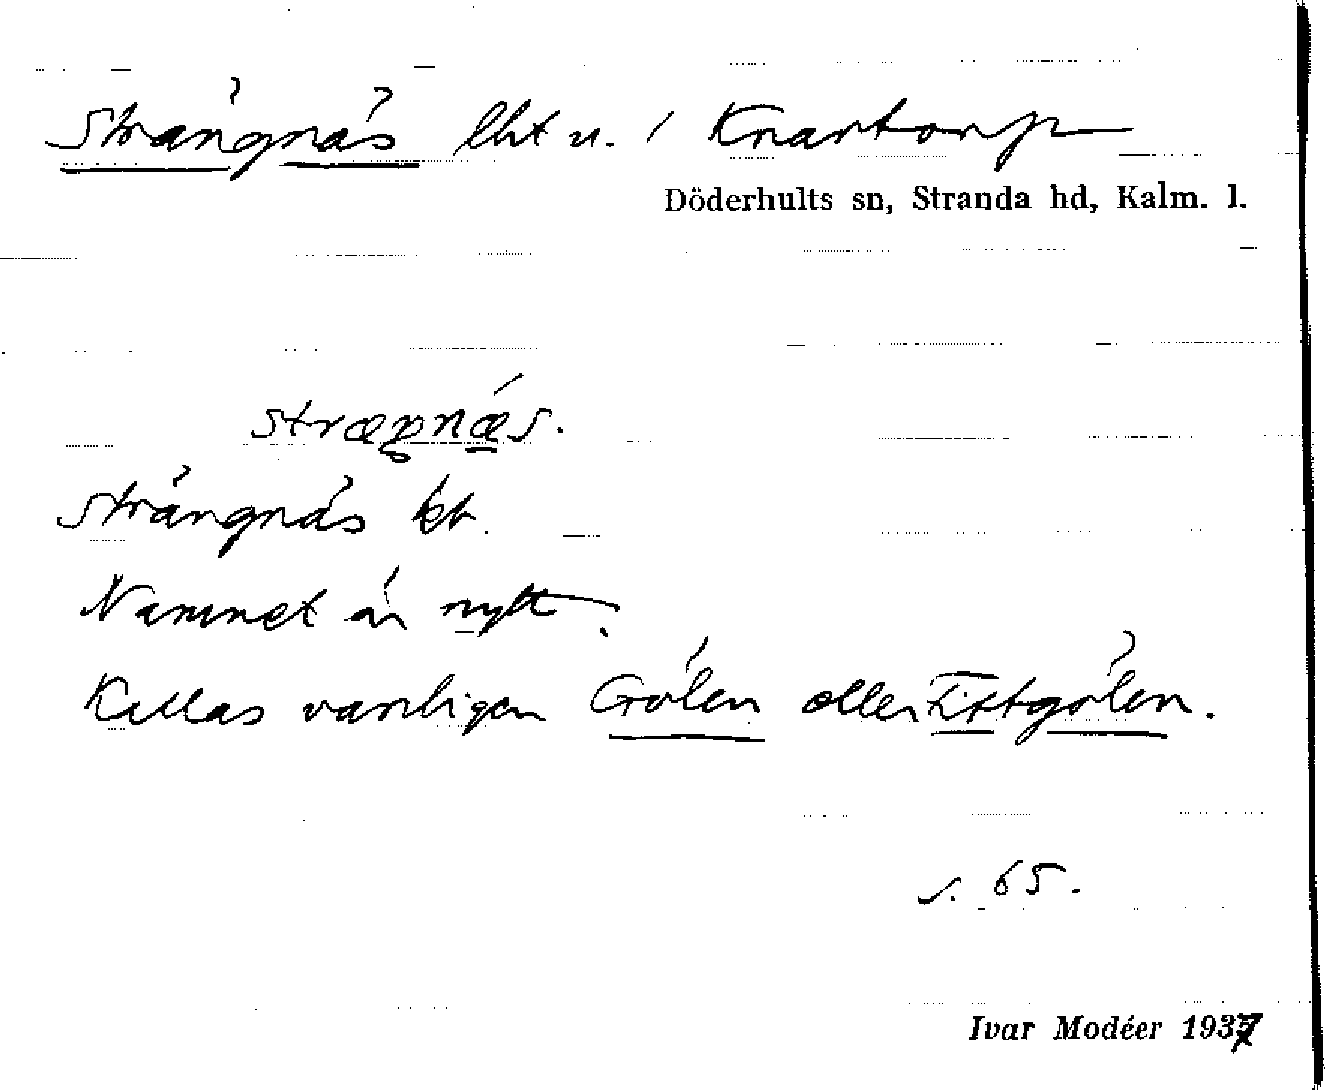 Strängnäs lht u. / Knartorp
Döderhults sn, Stranda hd, Kalm. l.
Strängnäs kt.
Namnet är nytt.
Kallas vanligen Gölen eller Tittgölen.
s. 65.
Ivar Modéer 1937